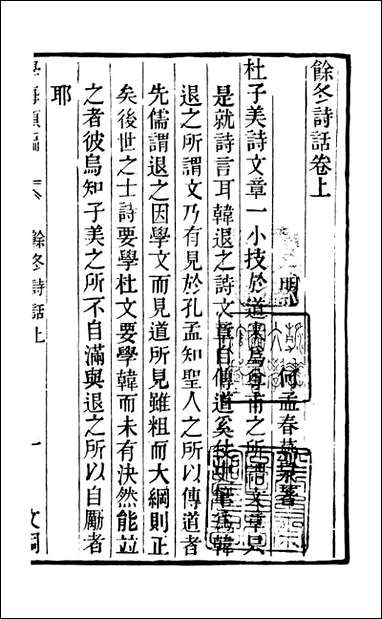 餘冬詩話卷上
明 何孟春 著
杜子美詩文章一小技於道未為尊甫之所謂文章只
是就詩言耳韓退之詩文章自傳道奚仗史筆為韓
退之所謂文乃有見於孔孟知聖人之所以傳道者
先儒謂退之因學文而見道所見雖粗而大綱則正
矣後世之士詩要學杜文要學韓而未有決然能並
之者彼烏知子美之所不自滿與退之所以自勵者
耶
學海類編 餘冬詩話上 一